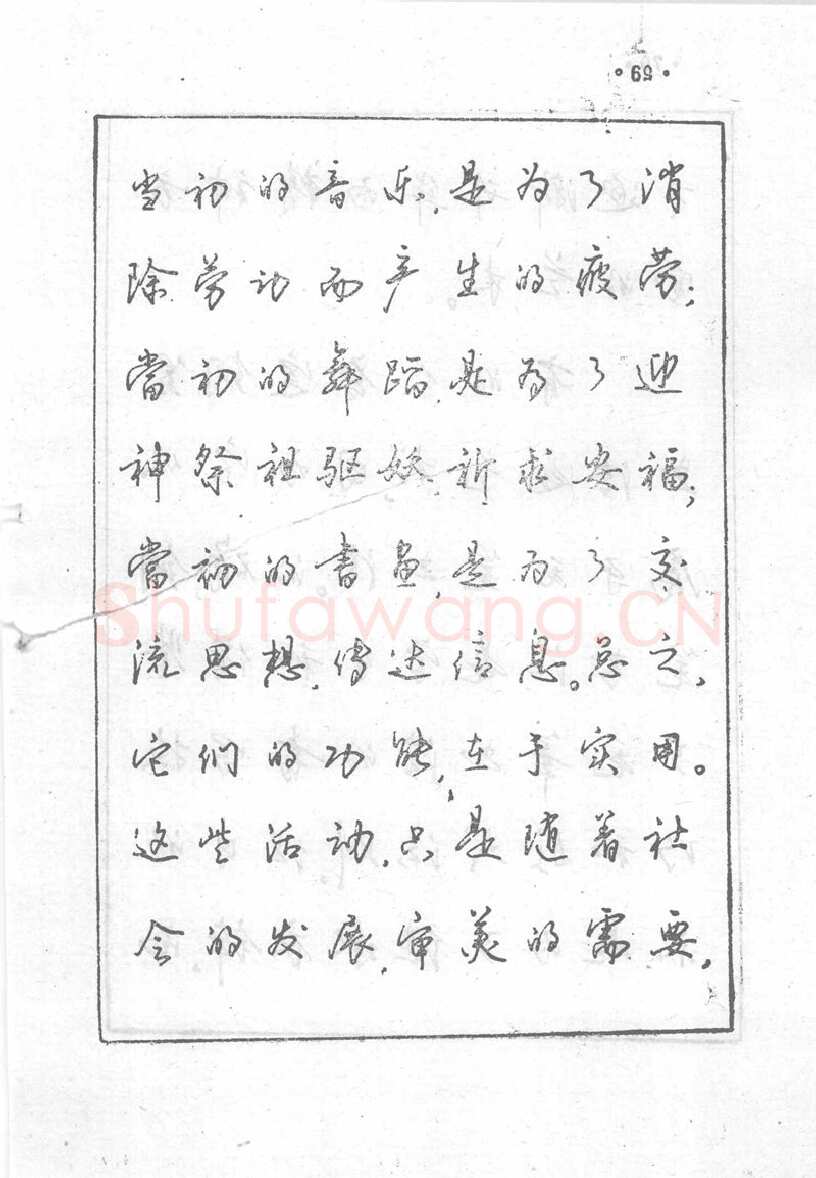 ·59·
当初的音乐,是为了消
除劳动而产生的疲劳;
當初的舞蹈,是为了迎
神祭祖驱妖祈求安福;
當初的書画,是为了交
Shufawang.CN
流思想,传达信息。总之,
它们的功能,在于实用。
这些活动,只是随着社
会的发展,审美的需要,